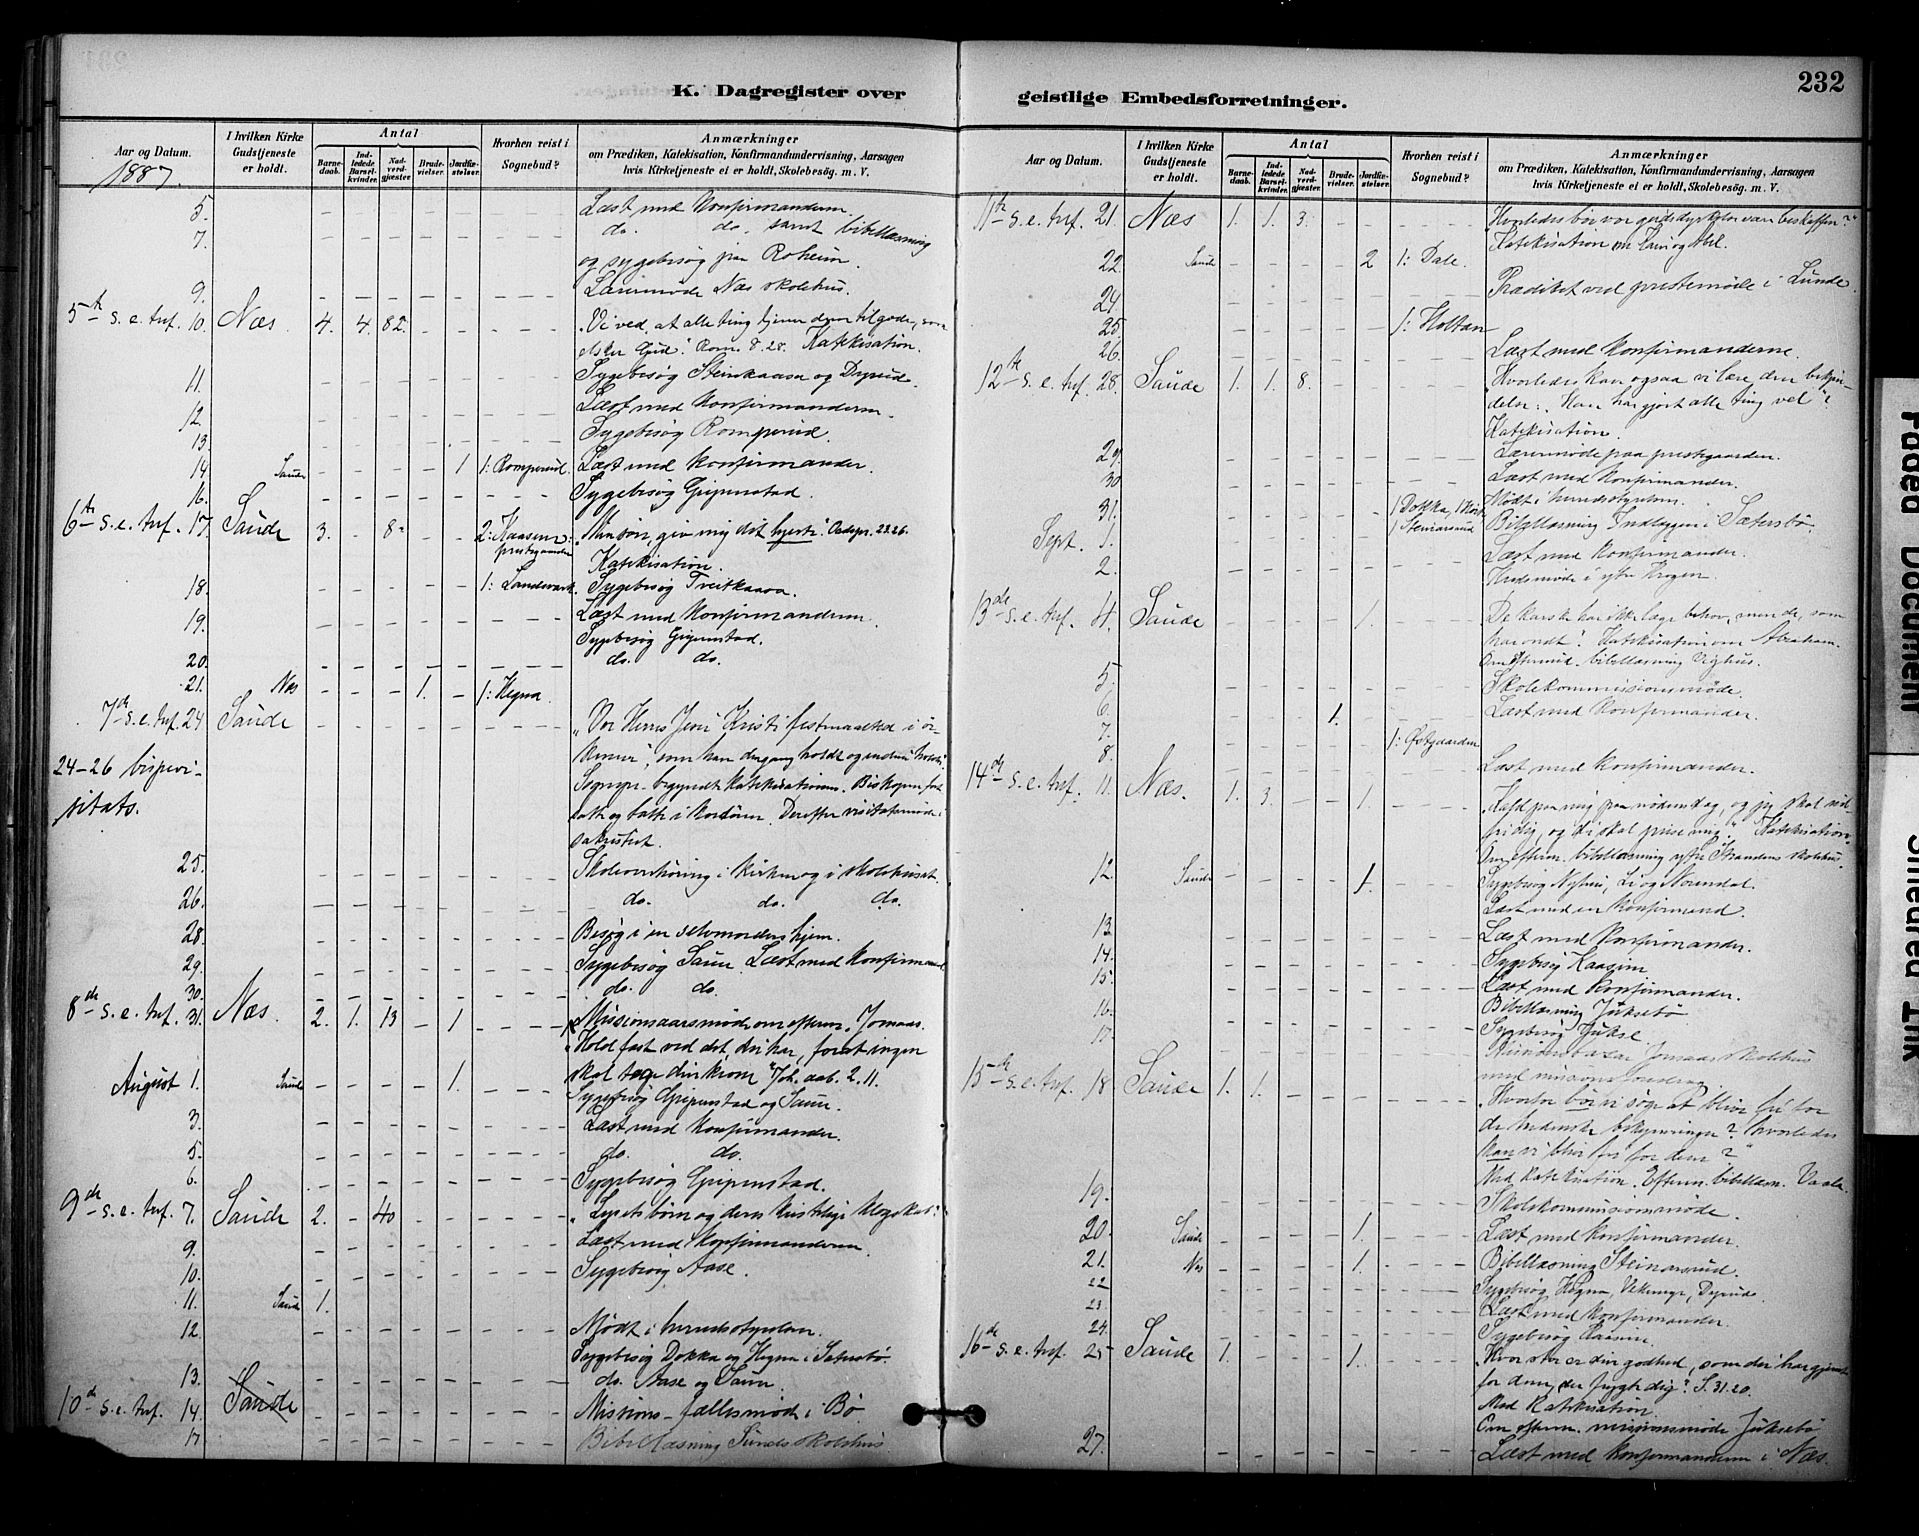 K. Dagregister over
Aar og Datum.
I hvilken Kirke Gudstjeneste er holdt.
Antal
Barne-daab.
Ind-ledede Barsel-kvinder.
Nad-verd-gjester
Brude-vielser.
Jordfæ-stelser.
Hvorhen reist i Sognebud?
Anmærkninger
om Prædiken, Katekisation, Konfirmandundervisning, Aarsagen
hvis Kirketjeneste ei er holdt, Skolebesøg. m. V.
1887.
5. Læst med Konfirmanderne.
7. do. do. samt bibellæsning
og sygebesøg paa Roheim.
9. Læremøde Næs skolehus.
5te S. e. tref. 10. Næs. 4. 4. 82. "Vi ved, at alle ting tjener dem tilgode, som
elsker Gud". Rom. 8. 28. Katekisation.
11. Sygebesøg Steinkaasa og Dyrud.
12. Læst med Konfirmanderne.
13. Sygebesøg Romperud.
14. Saude 1 1: Romperud. Læst med konfirmander.
16. Sygebesøg Gripenstad.
6te S. e. tref. 17. Saude 3. 8. 2: Kaasene: prestegaarden "Min søn, giv mig dit hjerte". Ordspr. 23.26.
Katekisation.
18. 1: Landsverk. Sygebesøg Treitkaasa.
19. Læst med Konfirmanderne.
Sygebesøg Gripenstad.
20. do. do.
21. Næs 1. 1: Hegna
7de S. e. tref. 24 Saude "Vor Herres Jesu Kristi festmaaltid i ør-
kenen", som han dengang holdt og endnu holder.
24-26 bispevi-
sitats.
Sognepr. begyndte katekisationen. Biskopen fort-
satte og talte i kordøren. Derefter visitatsmøde i
sakristiet.
25. Skoleoverhøring i kirken og i skolehuset.
26. do. do. do.
28. Besøg i en selvmorders hjem.
29. Sygebesøg Saue. Læst med Konfirmand
30. do. do.
8de S. e. tref. 31. Næs. 2. 1. 13 1 Missionsaarsmøde om efterm. Jonaas.
"Hold fast ved det, du har, forat ingen
skal tage din krone" Joh. aab. 2. 11.
August 1. Saude 1. Sygebesøg Gripenstad og Saue.
3. Læst med Konfirmander.
5. do. do.
6. Sygebesøg Gripenstad.
9de S. e. tref. 7. Saude 2. 40 "Lysets børn og deres kristelige klogskab".
9. Læst med Konfirmanderne.
10. Sygebesøg Aase.
11. Saude 1.
12. Mødt i herredsstyrelsen.
Sygebesøg Dokka og Hegna i Sætersbø.
13. do. Aase og Saue.
10de S. e. tref. 14. Saude Missions-fællesmøde i Bø.
17 Bibellæsning Sunds skolehus
232
geistlige Embedsforretninger.
Aar og Datum.
I hvilken Kirke Gudstjeneste er holdt.
Antal
Barne-daab.
Ind-ledede Barsel-kvinder.
Nad-verd-gjester.
Brude-vielser.
Jordfæ-stelser.
Hvorhen reist i Sognebud?
Anmærkninger
om Prædiken, Katekisation, Konfirmandundervisning, Aarsagen
hvis Kirketjeneste ei er holdt, Skolebesøg. m. V.
11te S. e. tref. 21. Næs 1. 1. 3. Hvorledes bør vor gudsdyrkelse være beskaffen?"
Katekisation om Kain og Abel.
22. Saude 2 1: Dale.
24. Prædiket ved prestemøde i Lunde.
25. 1: Holtan
26. Læst med Konfirmanderne.
12te S. e. tref. 28. Saude 1. 1. 8. "Hvorledes kan ogsaa vi lære den bekjen-
delse: "Han har gjort alle ting vel"?
Katekisation.
29. Læremøde paa prestegaarden.
30 Læst med Konfirmander.
Mødt i herredsstyrelsen.
31. 1 Dokka, 1 Steinarsrud Bibellæsning i Sætersbø.
Sept. 1. Læst med konfirmander.
2. Fredsmøde i ytre Krogen.
13de S. e. tref. 4. Saude 1. De karske har ikke læge behov, men de, som
har ondt". Katekisation om Abraham.
Om efterm. bibellæsning Vighus.
5. Skolekommissionsmøde.
6. Læst med konfirmander.
7. 1.
8. 1: Østgaarden Læst med konfirmander.
14de S. e. tref. 11. Næs. 1. 3. 1. "Kald paa mig paa nødens dag, og jeg skal ud-
fri dig, og du skal prise mig." Katekisation.
Om efterm. bibellæsning ytre Strandens skolehus.
12. Saude 1. Sygebesøg Nyhus, Li og Norendal.
Læst med en konfirmand.
13. Læst med konfirmander.
14. Sygebesøg Kaasene
15. Læst med konfirmander.
16. Bibellæsning Juksebø
17. Sygebesøg Jukse.
Missionsbasar Jonaas skolehus
med missionsforedrag.
15de S. e. tref. 18 Saude 1. 1. "Hvorfor bør vi søge at blive fri for
de hedenske bekymringer? hvorledes
kan vi blive fri for dem?
Med Katekisation. Efterm. bibellæsn. Vaala.
19. Skolekommissionsmøde.
20. Saude 1. Læst med konfirmander.
21. Næs 1. Bibellæsning Steinarsrud.
22 Sygebesøg Hegna, Dyrud
23. Læst med konfirmander.
24. Sygebesøg Kaasene.
16de S. e. tref. 25 Saude 1. 1. "Hvor stor er din godhed, som du har gjemt
for dem, der frygte dig". S. 31.20.
Med Katekisation
Om efterm. missionsmøde Juksebø
27. Læst med konfirmanderne i Næs.
Faded Document
Smeared Ink